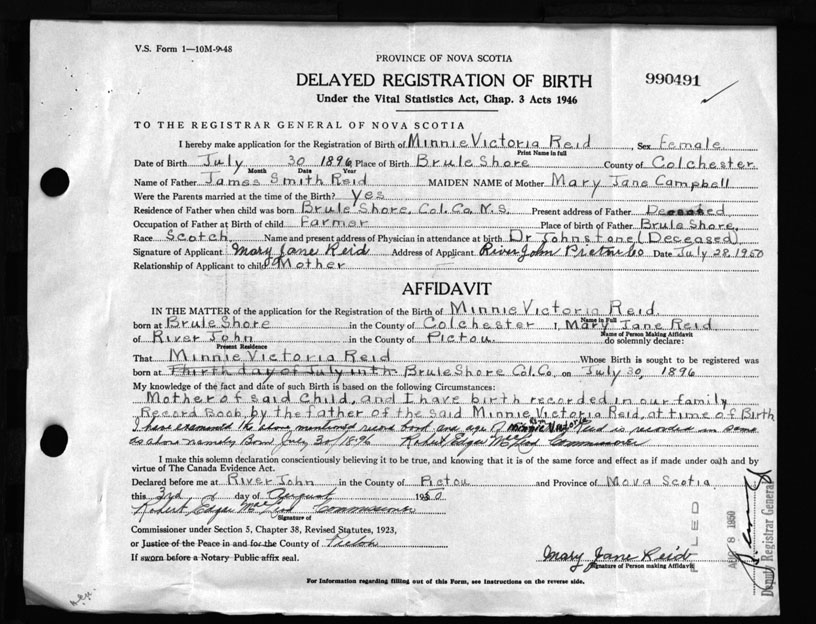 V.S. Form 1—10M-9-48
PROVINCE OF NOVA SCOTIA
DELAYED REGISTRATION OF BIRTH
990491
Under the Vital Statistics Act, Chap. 3 Acts 1946
TO THE REGISTRAR GENERAL OF NOVA SCOTIA
I hereby make application for the Registration of Birth of Minnie Victoria Reid, Sex Female
Print Name in full
Date of Birth July 30 1896 Place of Birth Brule Shore County of Colchester
Month Date Year
Name of Father James Smith Reid MAIDEN NAME of Mother Mary Jane Campbell
Were the Parents married at the time of the Birth? Yes
Residence of Father when child was born Brule Shore, Col. Co. N.S. Present address of Father Deceased
Occupation of Father at Birth of child Farmer Place of birth of Father Brule Shore.
Race Scotch. Name and present address of Physician in attendance at birth Dr Johnstone (Deceased)
Signature of Applicant Mary Jane Reid Address of Applicant River John Pictou Co Date July 28, 1950
Relationship of Applicant to child Mother
AFFIDAVIT
IN THE MATTER of the application for the Registration of the Birth of Minnie Victoria Reid.
Name in Full
born at Brule Shore in the County of Colchester I, Mary Jane Reid
Name of Person Making Affidavit
of River John in the County of Pictou do solemnly declare:
Present Residence
That Minnie Victoria Reid Whose Birth is sought to be registered was
born at Thirth day of July in th Brule Shore Col. Co. on July 30, 1896
My knowledge of the fact and date of such Birth is based on the following Circumstances:
Mother of said Child, and I have birth recorded in our family
Record Book, by the father of the said Minnie Victoria Reid, at time of Birth
I have examined the above mentioned record book and age of Minnie Victoria Reid is recorded in same
as above namely Born July 30/1896 Robert Edgar MacLeod Commissioner
I make this solemn declaration conscientiously believing it to be true, and knowing that it is of the same force and effect as if made under oath and by
virtue of The Canada Evidence Act.
Declared before me at River John in the County of Pictou and Province of Nova Scotia,
this 3rd day of August 1950
Robert Edgar MacLeod Commissioner
Signature of
Commissioner under Section 5, Chapter 38, Revised Statutes, 1923,
or Justice of the Peace in and for the County of Pictou
If sworn before a Notary Public affix seal.
Mary Jane Reid
Signature of Person making Affidavit
FILED
AUG 8 1950
Deputy Registrar General
For Information regarding filling out of this Form, see Instructions on the reverse side.